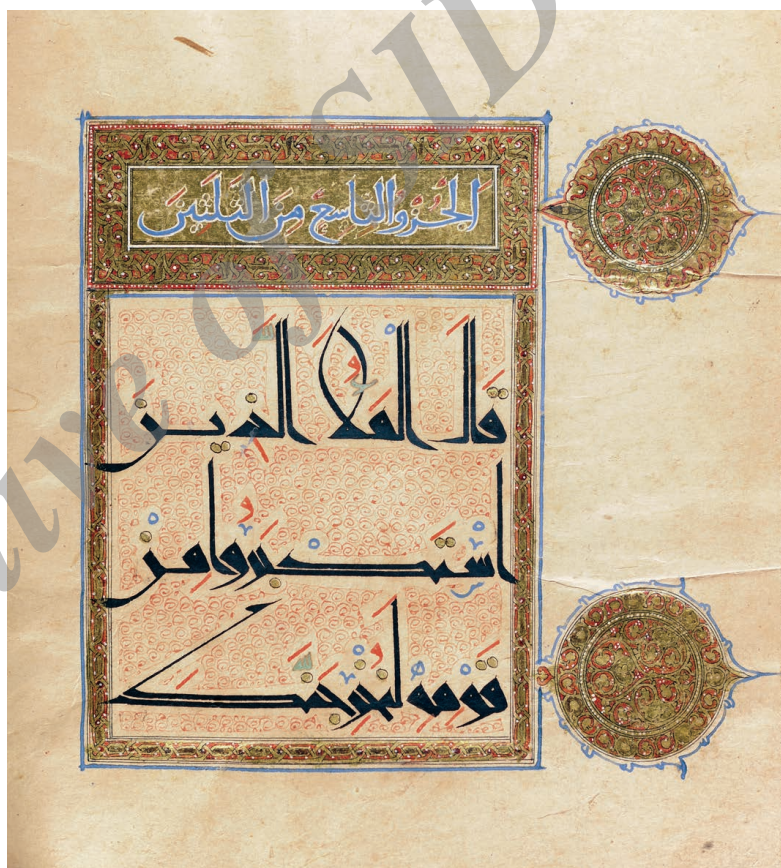 الجزو التاسع من الثلثين
قال الملأ الذين
استكبروا من
قومه لنخرجنك
ive of SID